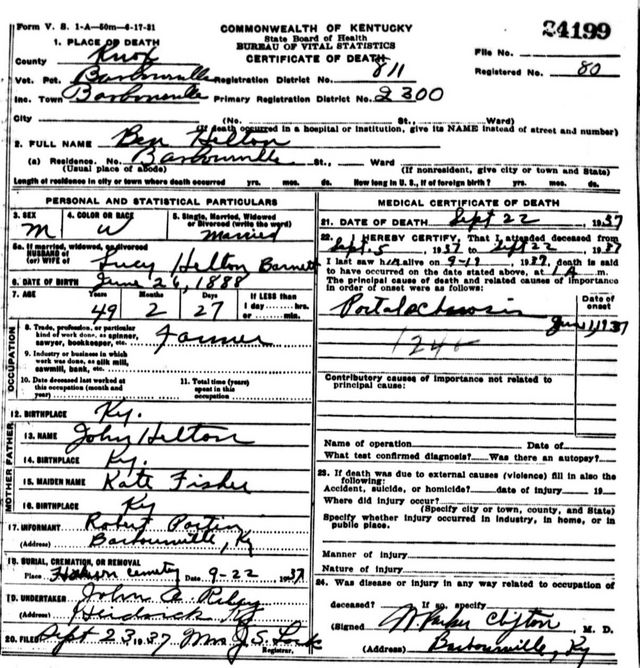 Form V. S. 1-A—50m—6-17-31
COMMONWEALTH OF KENTUCKY
State Board of Health
BUREAU OF VITAL STATISTICS
CERTIFICATE OF DEATH
24199
1. PLACE OF DEATH
County Knox
File No.
Vot. Pct. Barbourville Registration District No. 811
Registered No. 80
Inc. Town Barbourville Primary Registration District No. 2300
City (No. St., Ward)
(If death occurred in a hospital or institution, give its NAME instead of street and number)
2. FULL NAME Ben Helton
(a) Residence. No. Barbourville St., Ward
(Usual place of abode) (If nonresident, give city or town and State)
Length of residence in city or town where death occurred yrs. mos. ds. How long in U. S., if of foreign birth? yrs. mos. ds.
PERSONAL AND STATISTICAL PARTICULARS
3. SEX
M
4. COLOR OR RACE
W
5. Single, Married, Widowed or Divorced (write the word)
Married
5a. If married, widowed, or divorced
HUSBAND of
(or) WIFE of Lucy Helton Barnett
6. DATE OF BIRTH June 26, 1888
7. AGE Years Months Days If LESS than
49 2 27 1 day hrs.
or min.
OCCUPATION
8. Trade, profession, or particular
kind of work done, as spinner,
sawyer, bookkeeper, etc. Farmer
9. Industry or business in which
work was done, as silk mill,
sawmill, bank, etc.
10. Date deceased last worked at
this occupation (month and
year)
11. Total time (years)
spent in this
occupation
12. BIRTHPLACE Ky.
FATHER
13. NAME John Helton
14. BIRTHPLACE Ky.
MOTHER
15. MAIDEN NAME Kate Fisher
16. BIRTHPLACE Ky
17. INFORMANT Robert
(Address) Barbourville, Ky
18. BURIAL, CREMATION, OR REMOVAL
Place cemetery Date 9-22 1937
19. UNDERTAKER John A.
(Address) Ky
20. FILED Sept 23 1937 Mrs J. S.
Registrar.
MEDICAL CERTIFICATE OF DEATH
21. DATE OF DEATH Sept 22, 1937
22. I HEREBY CERTIFY, That I attended deceased from
Sept. 5, 1937 to Sept 22, 1937
I last saw h alive on 9-19, 1937, death is said
to have occurred on the date stated above, at 1 A m.
The principal cause of death and related causes of importance
in order of onset were as follows:
Date of
onset
Portal
June 1, 1937
124
Contributory causes of importance not related to
principal cause:
Name of operation Date of
What test confirmed diagnosis? Was there an autopsy?
23. If death was due to external causes (violence) fill in also the
following:
Accident, suicide, or homicide? date of injury 19
Where did injury occur?
(Specify city or town, county, and State)
Specify whether injury occurred in industry, in home, or in
public place.
Manner of injury
Nature of injury
24. Was disease or injury in any way related to occupation of
deceased? If so, specify
(Signed) Parker Clifton M. D.
(Address) Barbourville, Ky